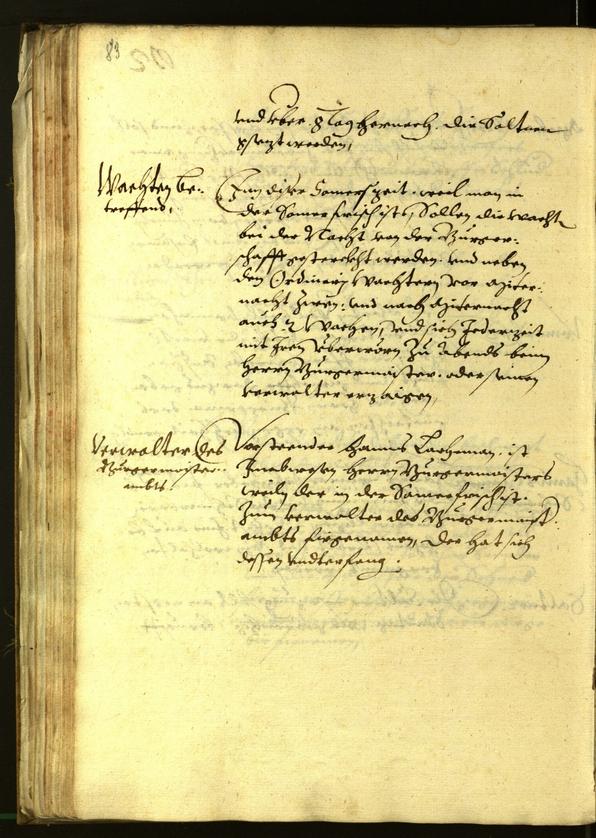 83
und uber 8 Tag hernach, die Saltner
gsezt werden,
Wachten be-
treffend.
Zu diser Somers Zeit, weil man in
der Somerfrisch ist, Sollen die wacht
bei der Nacht von der Burger-
schafft gsterckht werden. und neben
den Ordinarj Wachtern vor miter-
nacht zwen, und nach miternacht
auch 2 Wachen, und sich Jederzeit
mit Iren uberwörn zu abends beim
Herrn Burgermaister, oder seinem
verwalter erzaigen,
Verwalter des
Burgermaister-
ambts.
Vorsteender Hanns Lachman, ist
Inabwesen Herrn Burgermaisters
weiln der in der Somerfrisch ist,
Zum verwalter des Burgermaist:
ambts firgenomen, Der hat sich
dessen underfang.